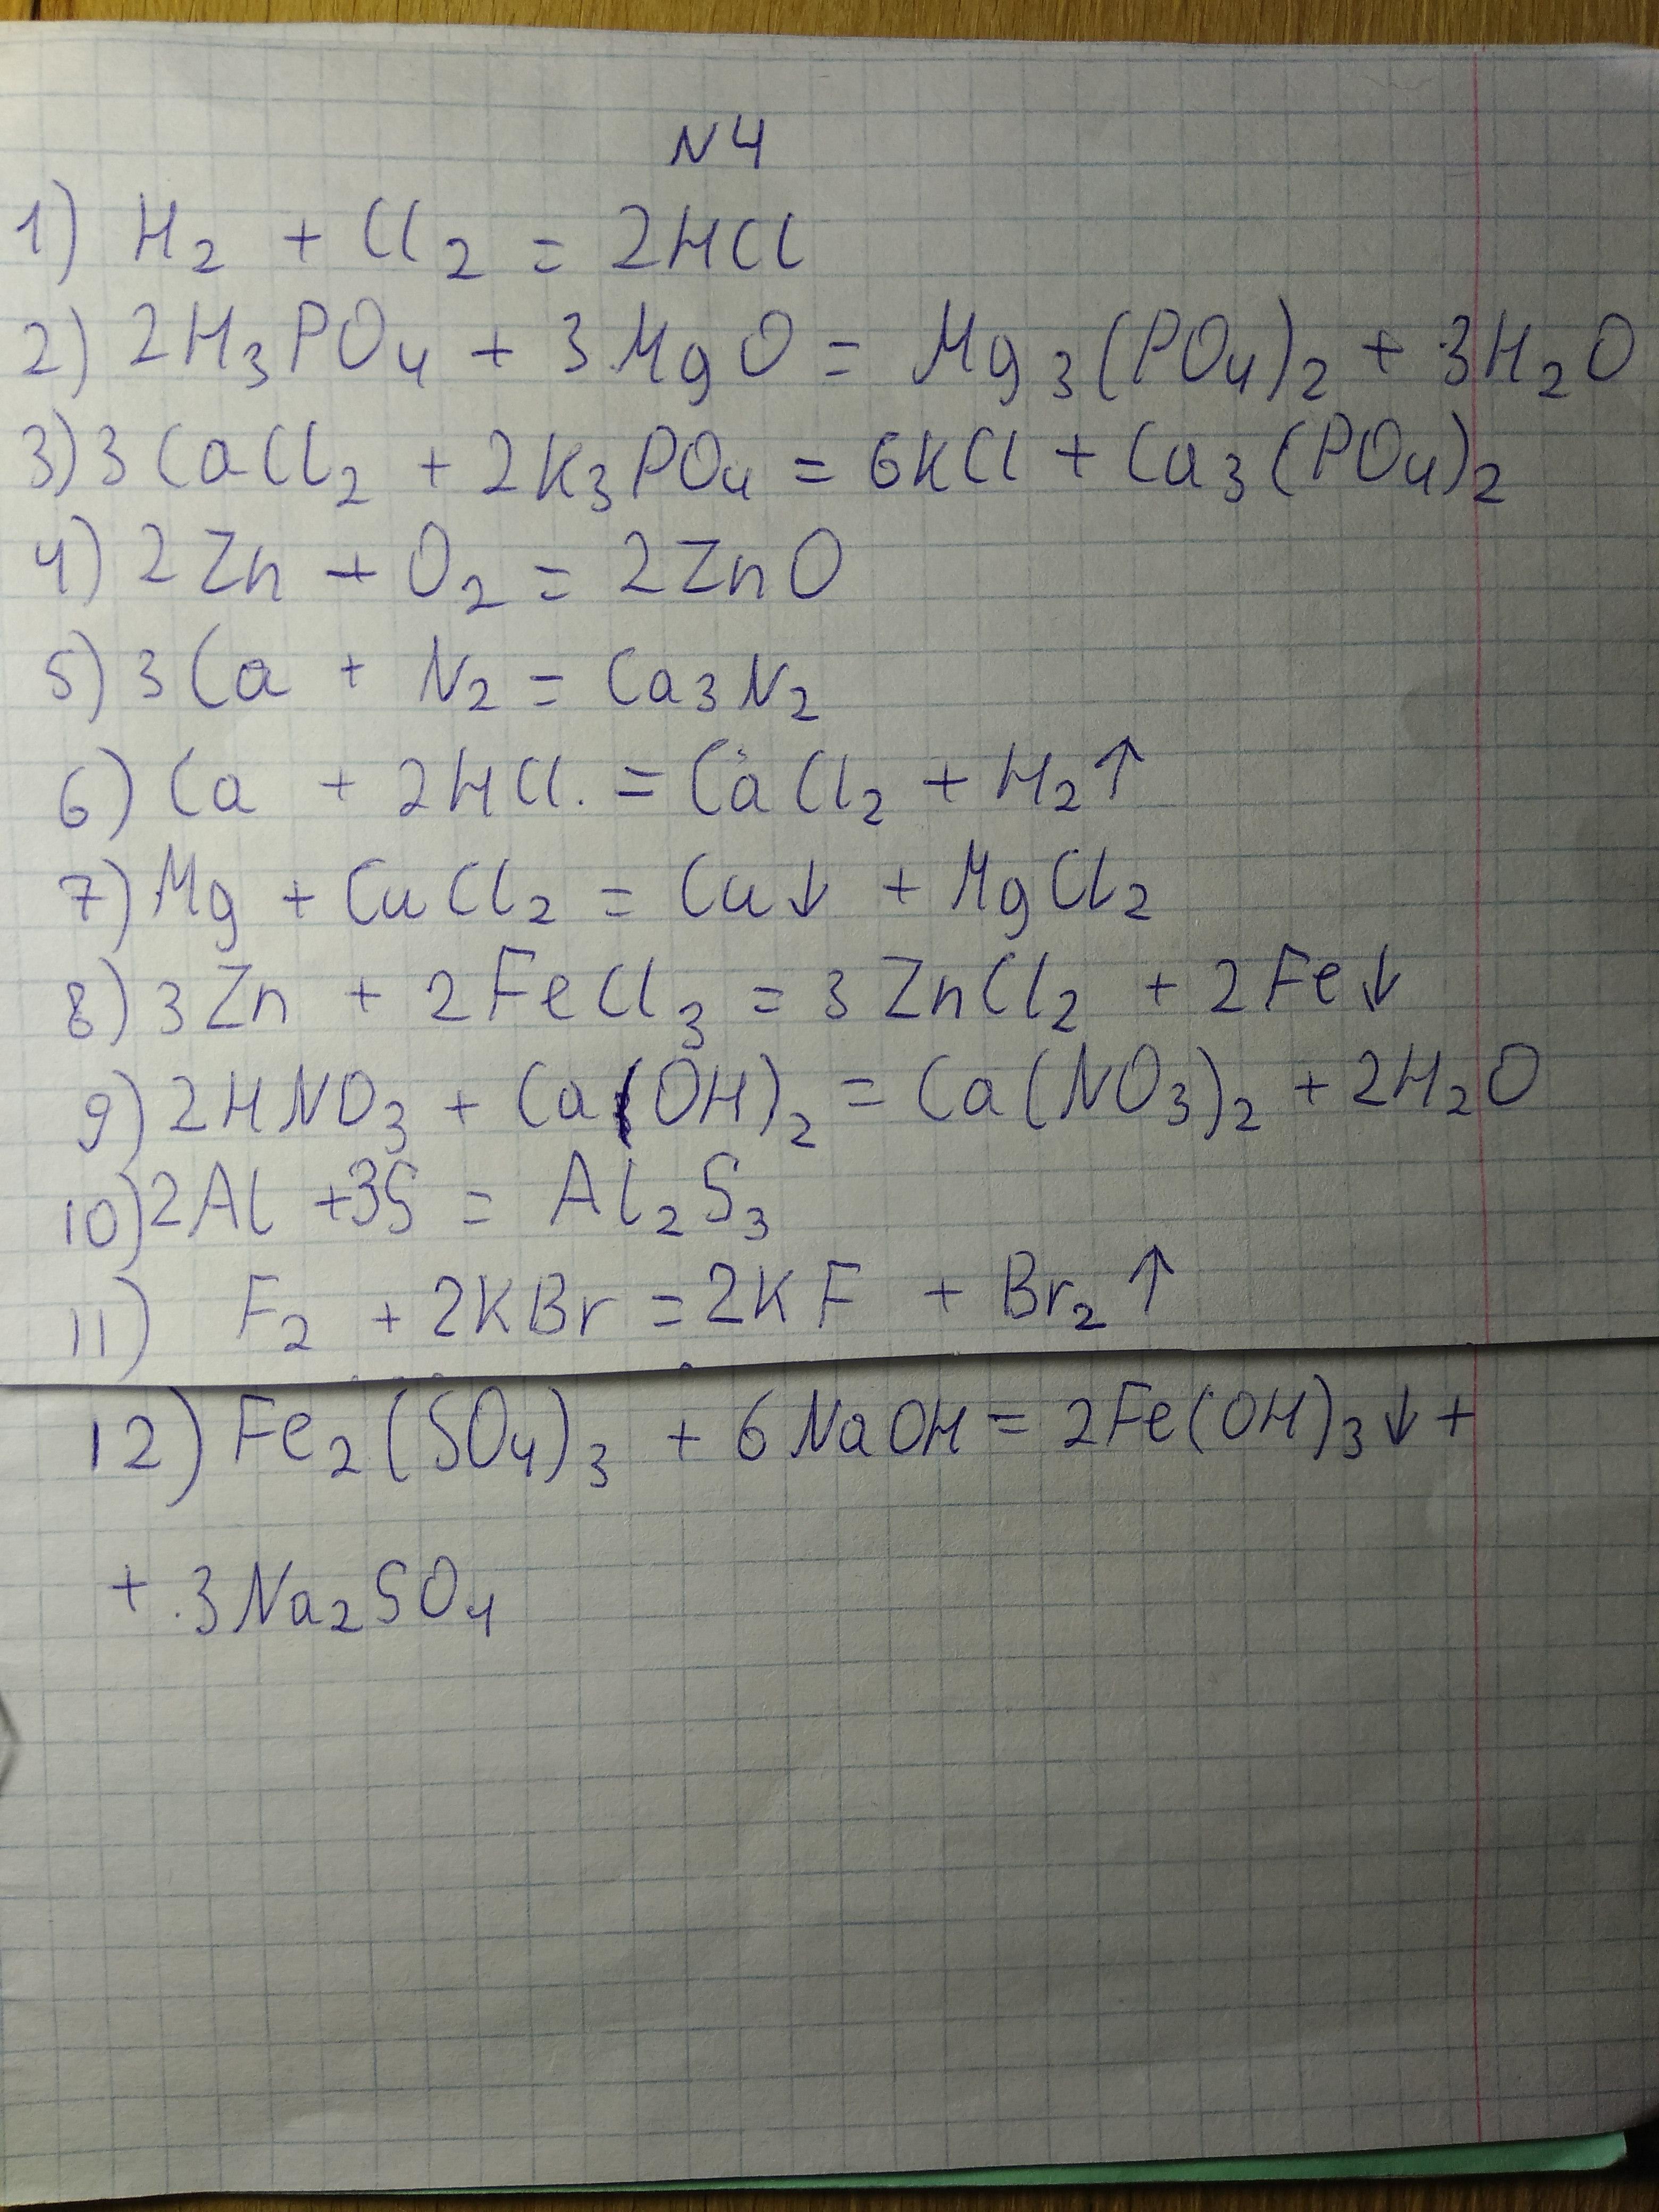 N4
1) H₂ + Cl₂ = 2HCl
2) 2H₃PO₄ + 3MgO = Mg₃(PO₄)₂ + 3H₂O
3) 3CaCl₂ + 2K₃PO₄ = 6KCl + Ca₃(PO₄)₂
4) 2Zn + O₂ = 2ZnO
5) 3Ca + N₂ = Ca₃N₂
6) Ca + 2HCl = CaCl₂ + H₂↑
7) Mg + CuCl₂ = Cu↓ + MgCl₂
8) 3Zn + 2FeCl₃ = 3ZnCl₂ + 2Fe↓
9) 2HNO₃ + Ca(OH)₂ = Ca(NO₃)₂ + 2H₂O
10) 2Al + 3S = Al₂S₃
11) F₂ + 2KBr = 2KF + Br₂↑
12) Fe₂(SO₄)₃ + 6NaOH = 2Fe(OH)₃↓ +
+ 3Na₂SO₄